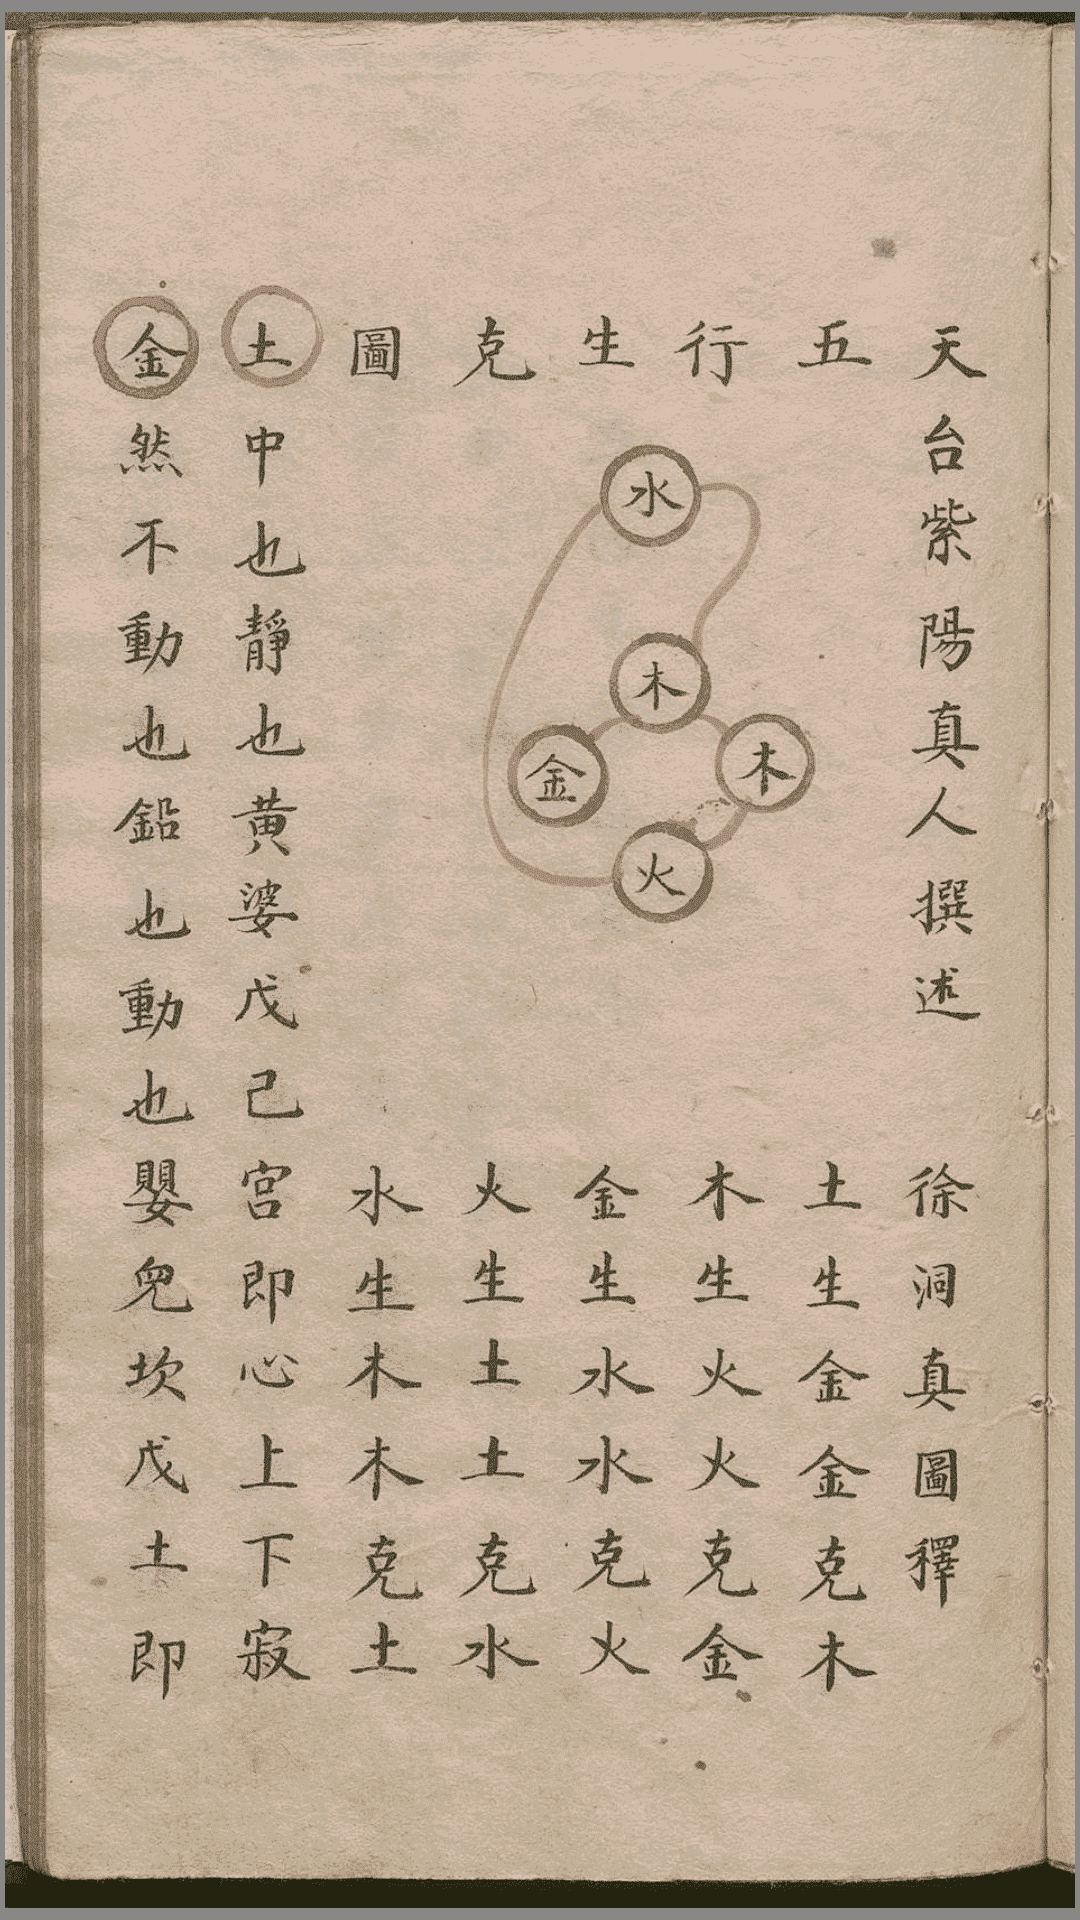 天台紫陽真人撰述　徐洞真圖釋
五行生克圖
水
木
金
木
火
土生金金克木
木生火火克金
金生水水克火
火生土土克水
水生木木克土
土中也靜也黄婆戊己宮即心上下寂
金然不動也鉛也動也嬰兒坎戊土即